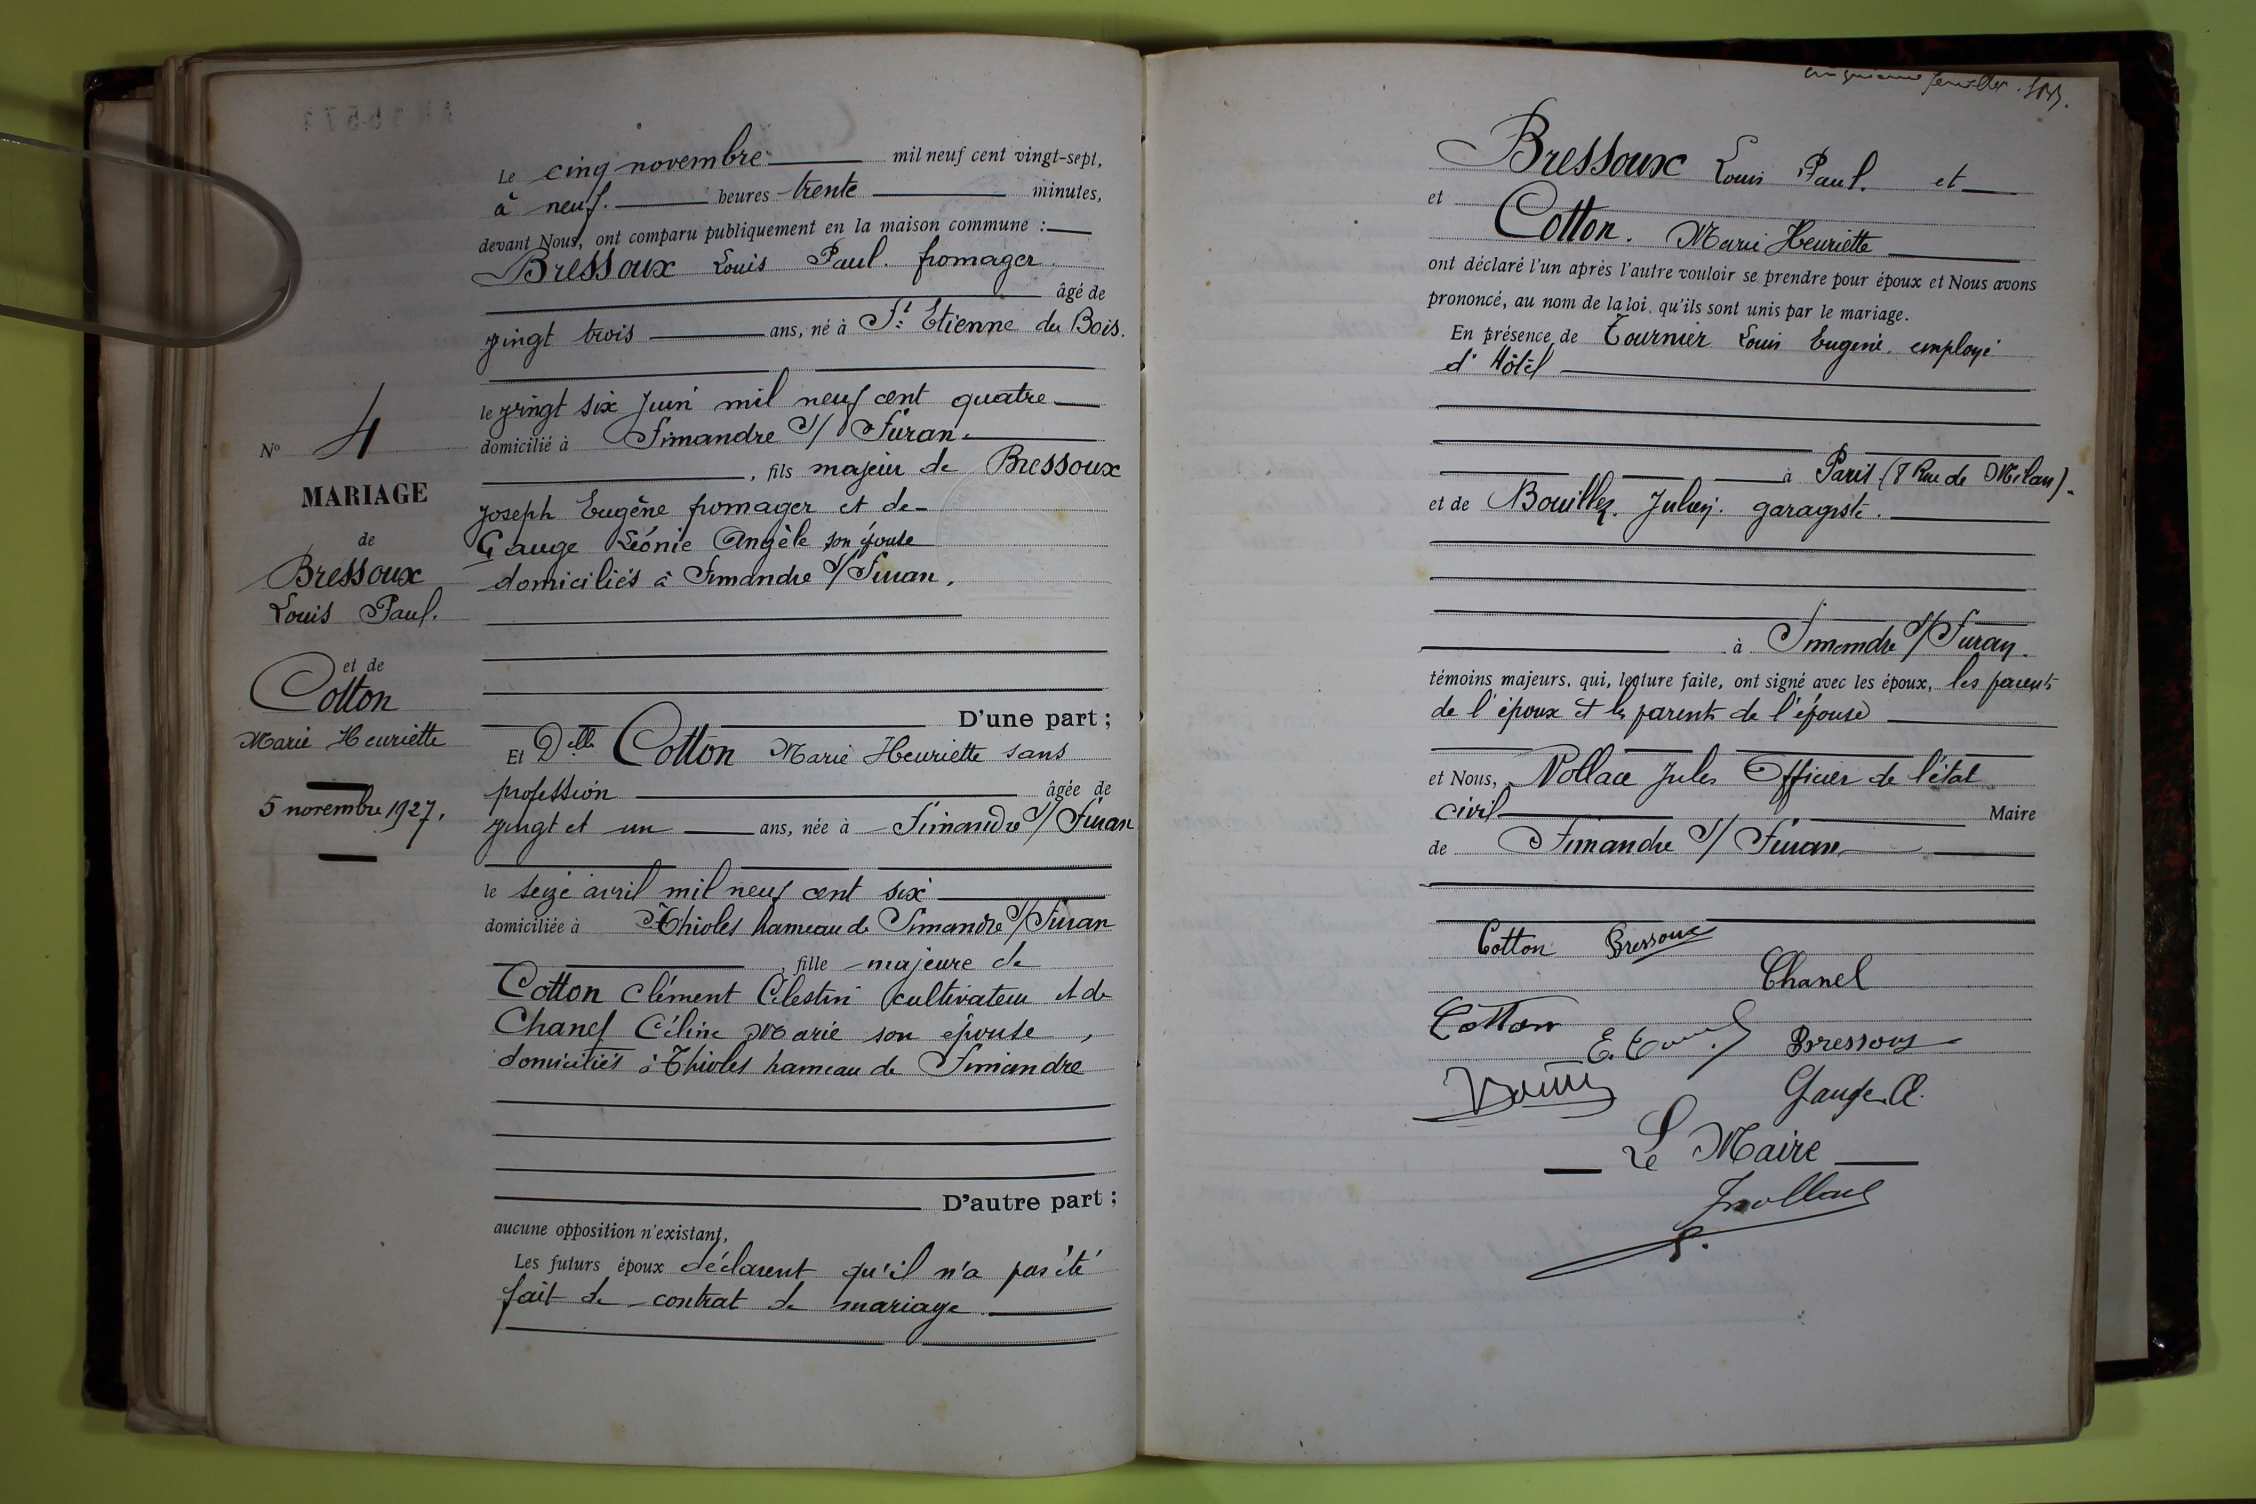 N° 4
MARIAGE
de
Bressoux
Louis Paul.
et de
Cotton
Marie Henriette
5 novembre 1927.
Le cinq novembre mil neuf cent vingt-sept,
à neuf. heures trente minutes,
devant Nous, ont comparu publiquement en la maison commune :
Bressoux Louis Paul. fromager
âgé de
vingt trois ans, né à St Etienne du Bois.
le vingt six Juin mil neuf cent quatre
domicilié à Simandre s/ Suran.
, fils majeur de Bressoux
Joseph Eugène fromager et de
Gauge Léonie Angèle son épouse
domiciliés à Simandre s/ Suran.
D'une part ;
Et Delle Cotton Marie Henriette sans
profession âgée de
vingt et un ans, née à Simandre s/ Suran
le seize avril mil neuf cent six
domiciliée à Thioles hameau de Simandre s/ Suran
, fille majeure de
Cotton Clément Célestin cultivateur et de
Chanel Céline Marie son épouse,
domiciliés à Thioles hameau de Simandre
D'autre part ;
aucune opposition n'existant,
Les futurs époux déclarent qu'il n'a pas été
fait de contrat de mariage
Bressoux Louis Paul. et
et
Cotton. Marie Henriette
ont déclaré l'un après l'autre vouloir se prendre pour époux et Nous avons
prononcé, au nom de la loi, qu'ils sont unis par le mariage.
En présence de Tournier Louis Eugène. employé
d'Hôtel
à Paris (8 Rue de Milan).
et de Bouillez. Julien. garagiste.
à Simandre s/ Suran.
témoins majeurs, qui, lecture faite, ont signé avec les époux, les parents
de l'époux et les parents de l'épouse
et Nous, Nollace Jules Officier de l'état
civil Maire
de Simandre s/ Suran
Cotton Bressoux
Chanel
Cotton
Bressoux
Gauge A.
Le Maire